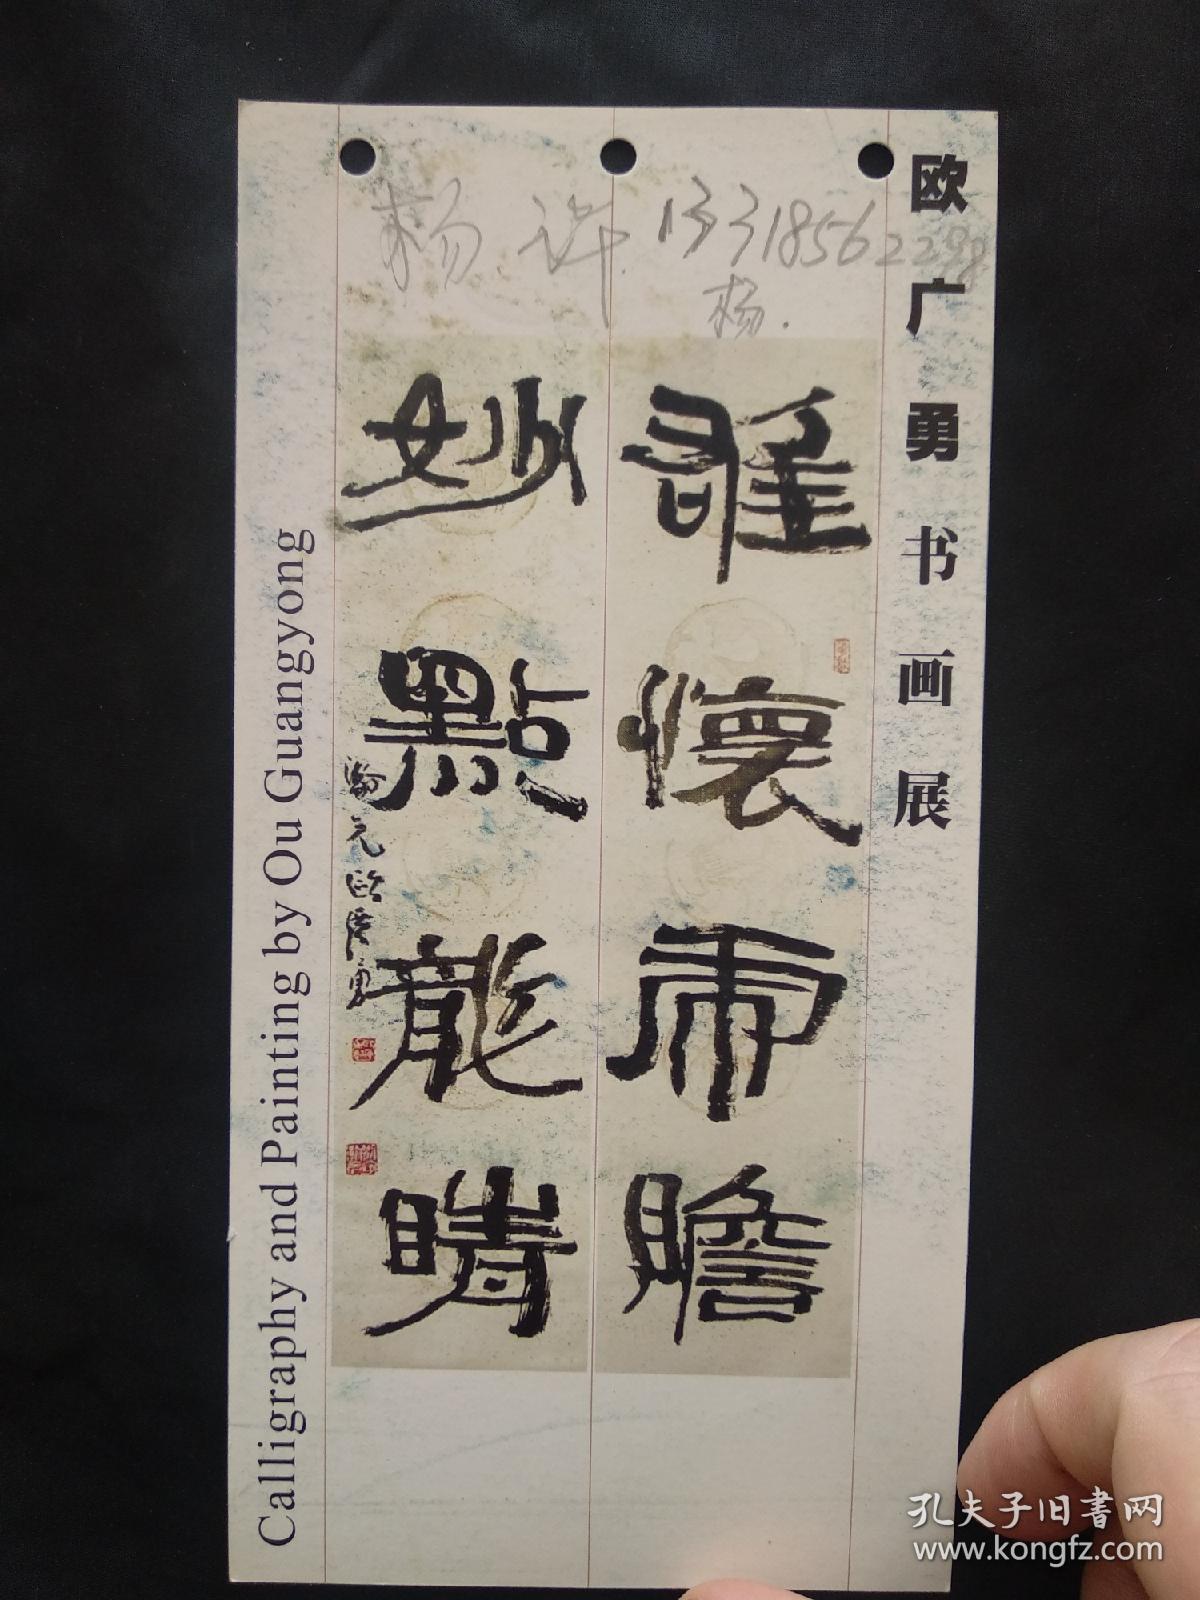 欧广勇书画展
杨 许 13318562298
杨.
雄懷雨膽
妙點龍睛
Calligraphy and Painting by Ou Guangyong
孔夫子旧书网
www.kongfz.com